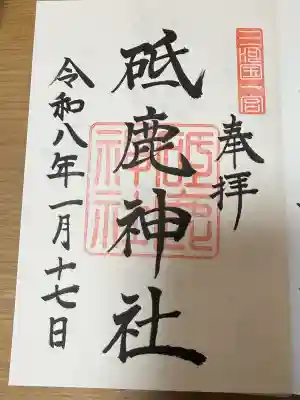 三河国一宮
奉拝
砥鹿神社
砥鹿神社
令和八年一月十七日